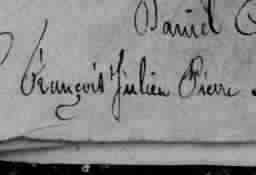 Daniel
François Julien Pierre